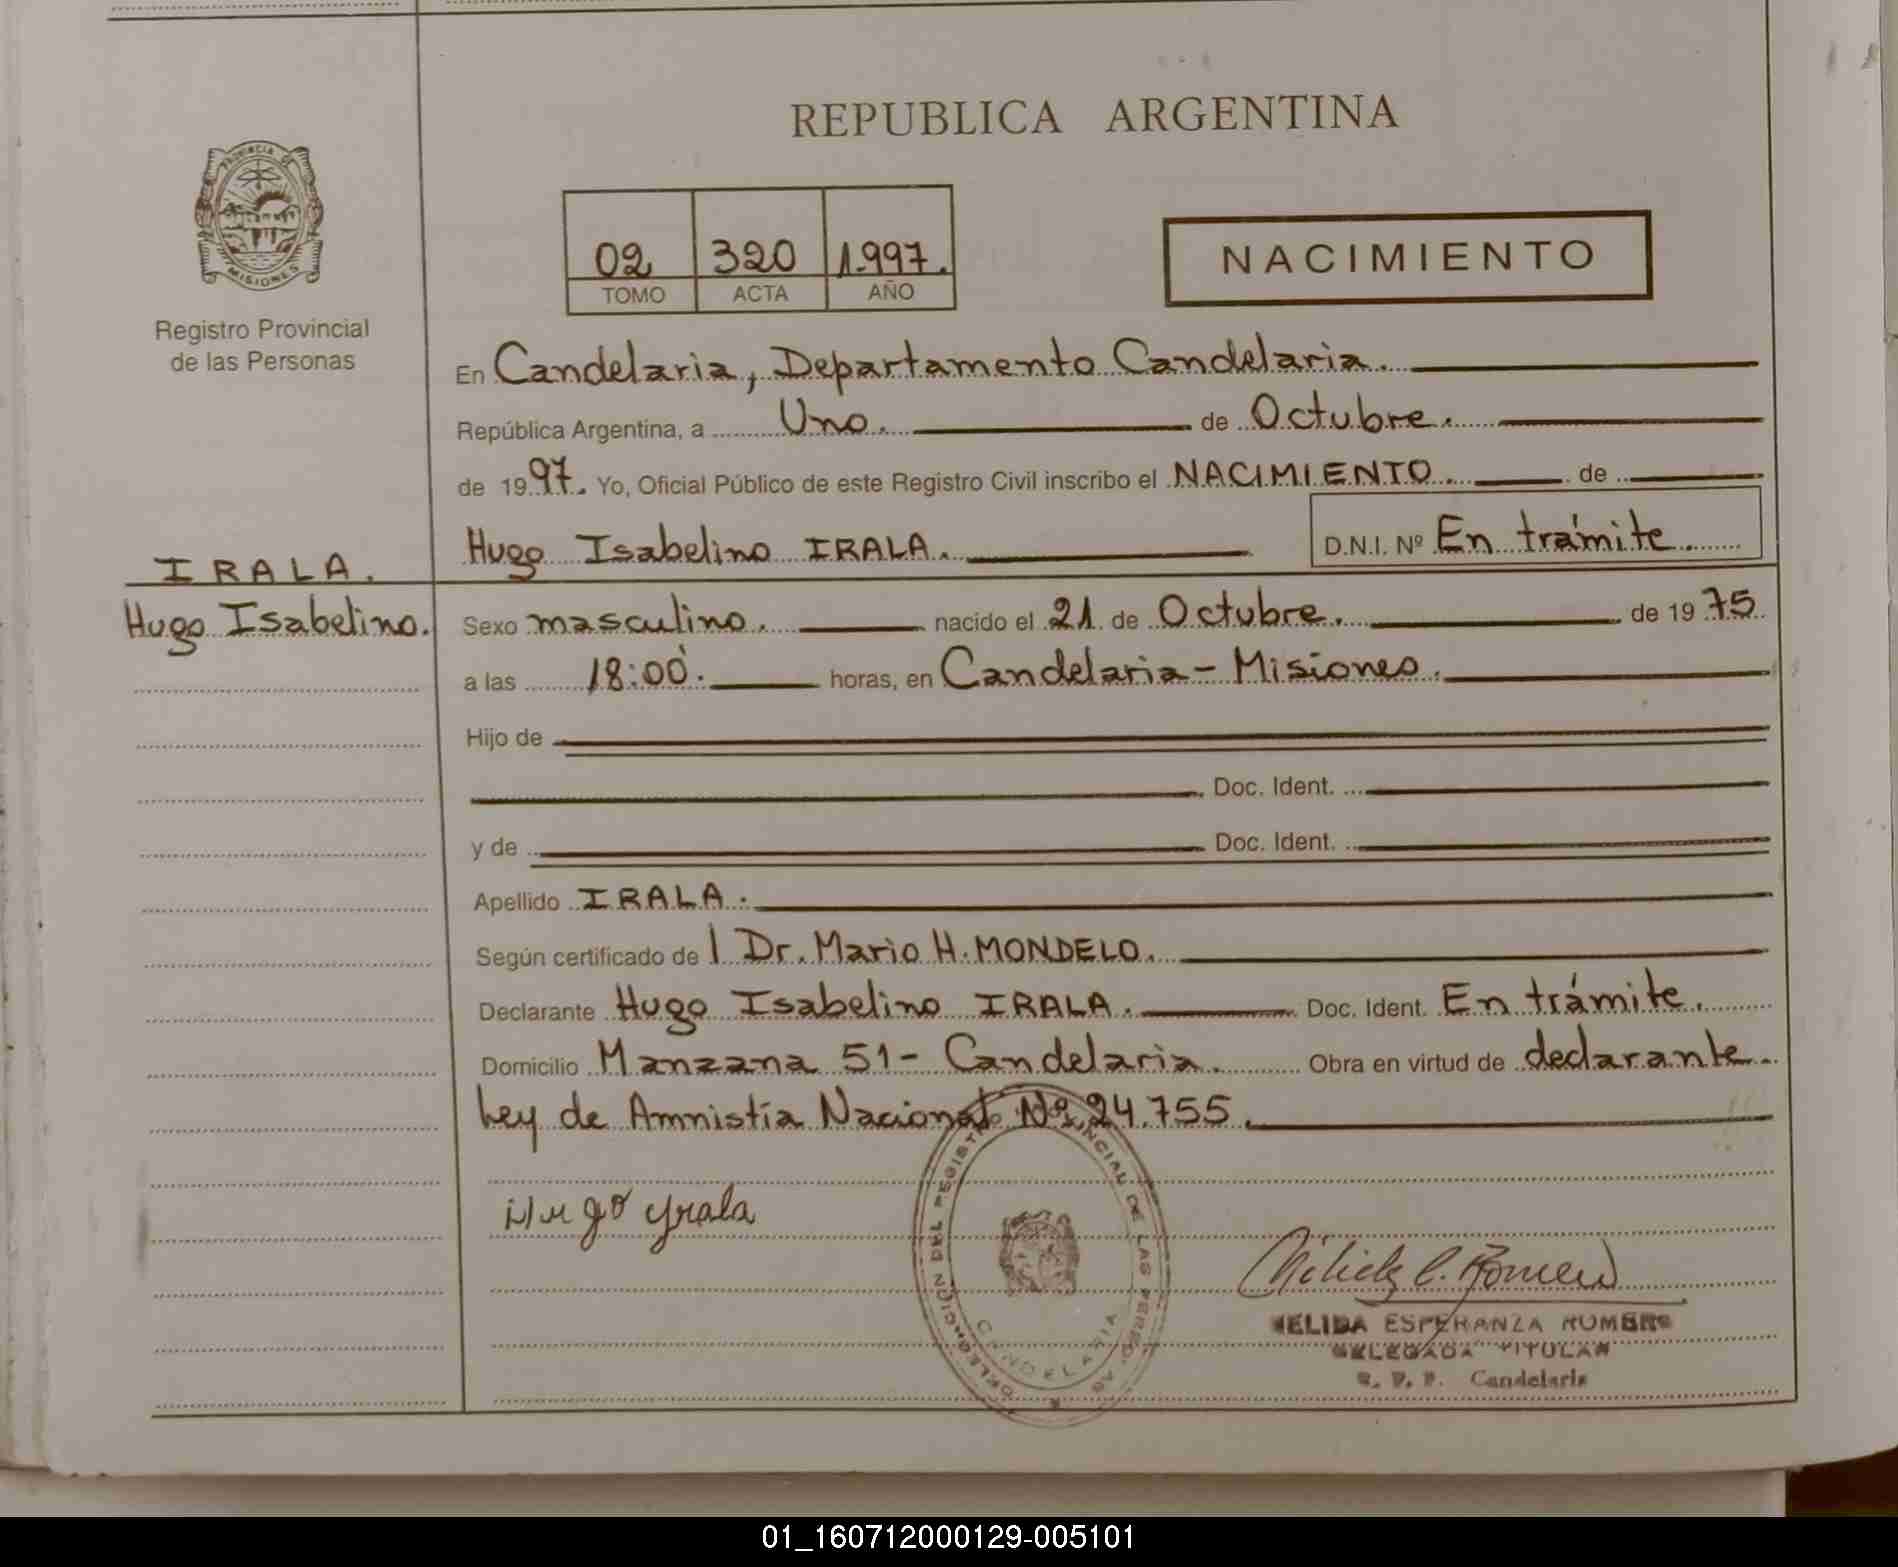 REPUBLICA ARGENTINA
PROVINCIA DE
MISIONES
Registro Provincial
de las Personas
02 320 1.997.
TOMO ACTA AÑO
NACIMIENTO
En Candelaria, Departamento Candelaria.
República Argentina, a Uno. de Octubre.
de 1997. Yo, Oficial Público de este Registro Civil inscribo el NACIMIENTO. de
Hugo Isabelino IRALA. D.N.I. Nº En trámite.
IRALA.
Hugo Isabelino.
Sexo masculino. nacido el 21 de Octubre. de 1975.
a las 18:00. horas, en Candelaria - Misiones.
Hijo de
Doc. Ident.
y de Doc. Ident.
Apellido IRALA.
Según certificado de l Dr. Mario H. MONDELO.
Declarante Hugo Isabelino IRALA. Doc. Ident. En trámite.
Domicilio Manzana 51 - Candelaria. Obra en virtud de declarante.
Ley de Amnistía Nacional Nº 24.755.
Hugo Yrala
DELEGACION DEL REGISTRO PROVINCIAL DE LAS PERSONAS
CANDELARIA
NELIDA ESPERANZA ROMERO
DELEGADA TITULAR
R. P. P. Candelaria
01_160712000129-005101